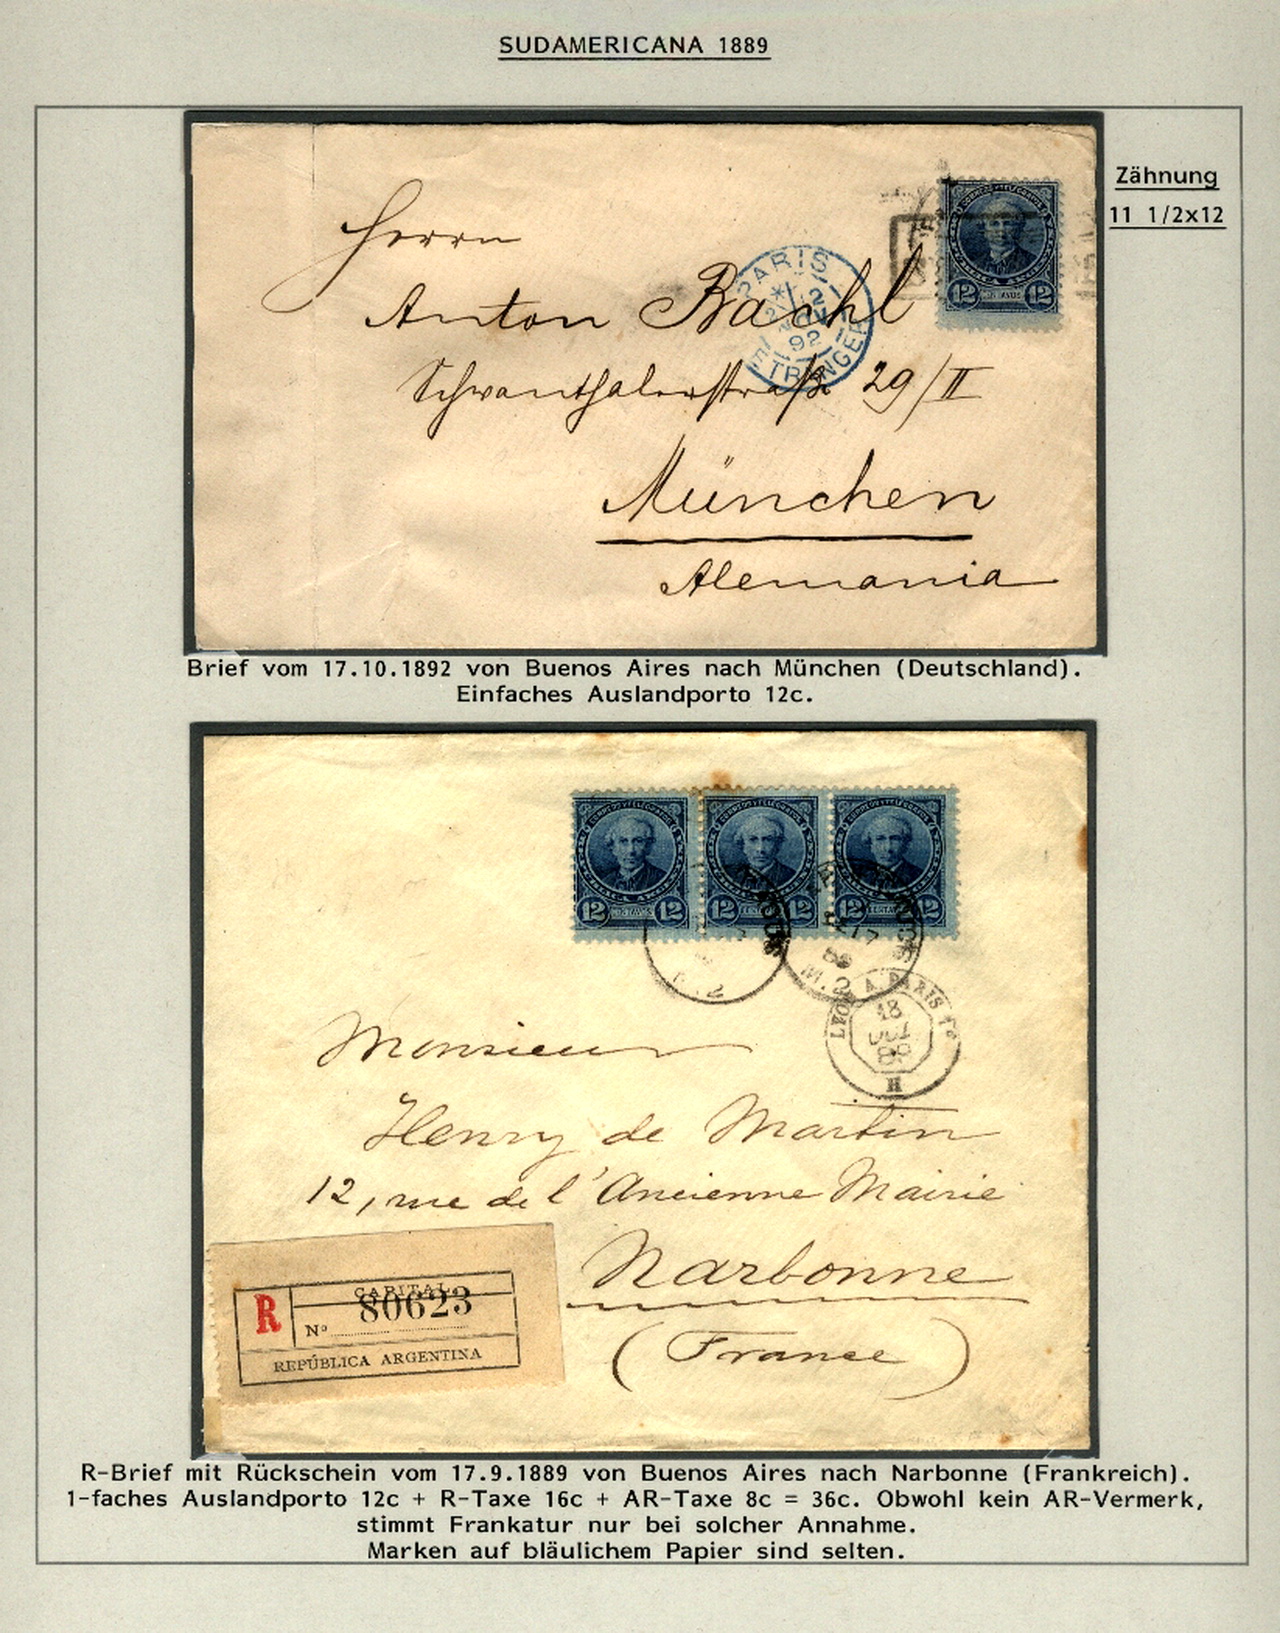 SUDAMERICANA 1889
Zähnung
11 1/2x12
Herrn
Anton Bachl
Schwanthalerstraße 29/II
München
Alemania
PARIS
92
ETRANGER
12 CENTAVOS 12
Brief vom 17.10.1892 von Buenos Aires nach München (Deutschland).
Einfaches Auslandporto 12c.
CORREOS Y TELEGRAFOS
12 CENTAVOS 12
CORREOS Y TELEGRAFOS
12 CENTAVOS 12
CORREOS Y TELEGRAFOS
12 CENTAVOS 12
M.2
LYON A PARIS 1º
18
H
Monsieur
Henry de Martin
12, rue de l'Ancienne Mairie
Narbonne
(France)
CAPITAL
R
Nº 80623
REPÚBLICA ARGENTINA
R-Brief mit Rückschein vom 17.9.1889 von Buenos Aires nach Narbonne (Frankreich).
1-faches Auslandporto 12c + R-Taxe 16c + AR-Taxe 8c = 36c. Obwohl kein AR-Vermerk,
stimmt Frankatur nur bei solcher Annahme.
Marken auf bläulichem Papier sind selten.